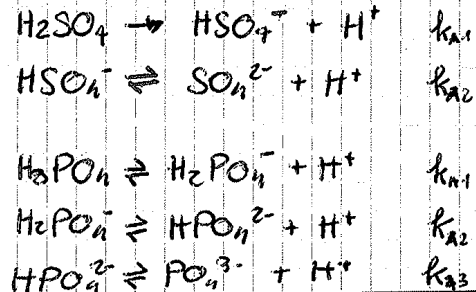 H₂SO₄ → HSO₄⁻ + H⁺ kA1
HSO₄⁻ ⇌ SO₄²⁻ + H⁺ kA2
H₃PO₄ ⇌ H₂PO₄⁻ + H⁺ kA1
H₂PO₄⁻ ⇌ HPO₄²⁻ + H⁺ kA2
HPO₄²⁻ ⇌ PO₄³⁻ + H⁺ kA3